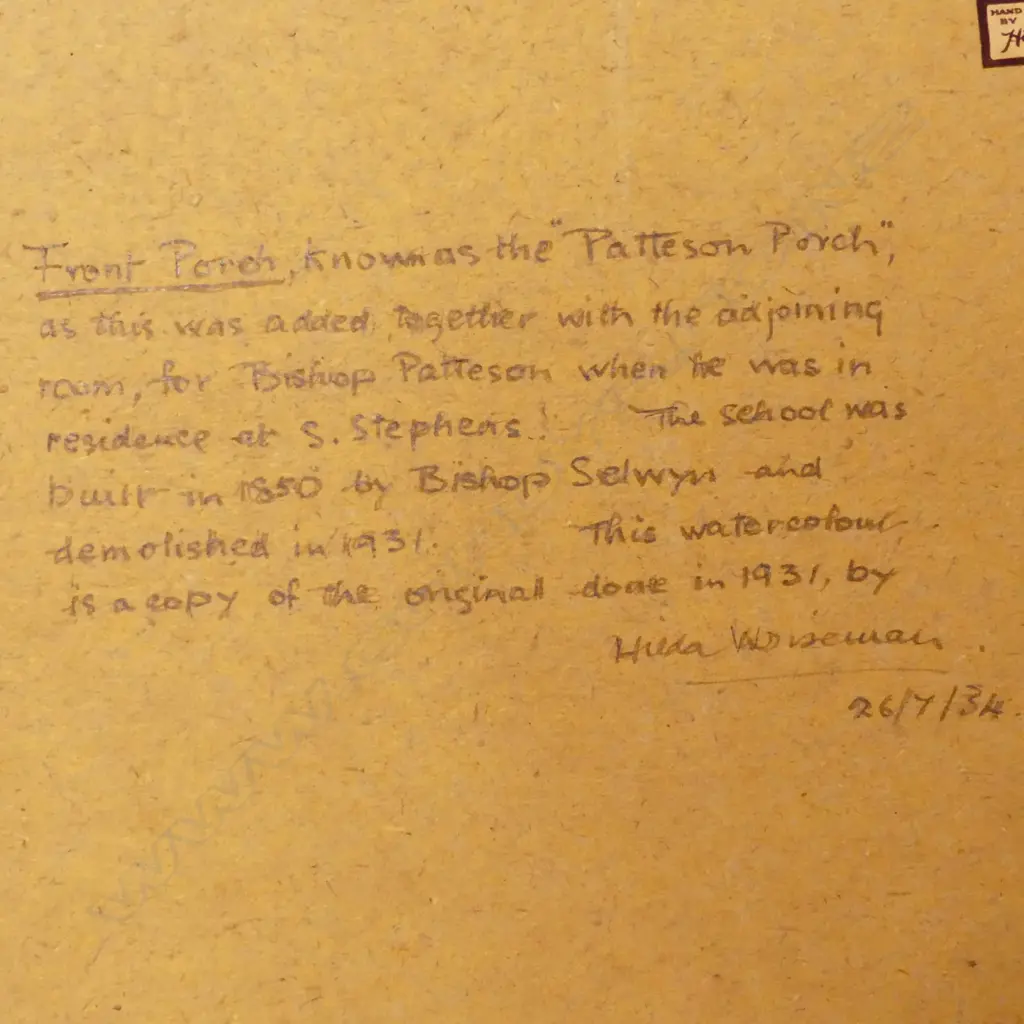 HAND
BY
Front Porch, known as the "Patteson Porch",
as this was added, together with the adjoining
room, for Bishop Patteson when he was in
residence at S. Stephens. The school was
built in 1850 by Bishop Selwyn and
demolished in 1931. This watercolour
is a copy of the original done in 1931, by
Hilda Wiseman.
26/7/34.